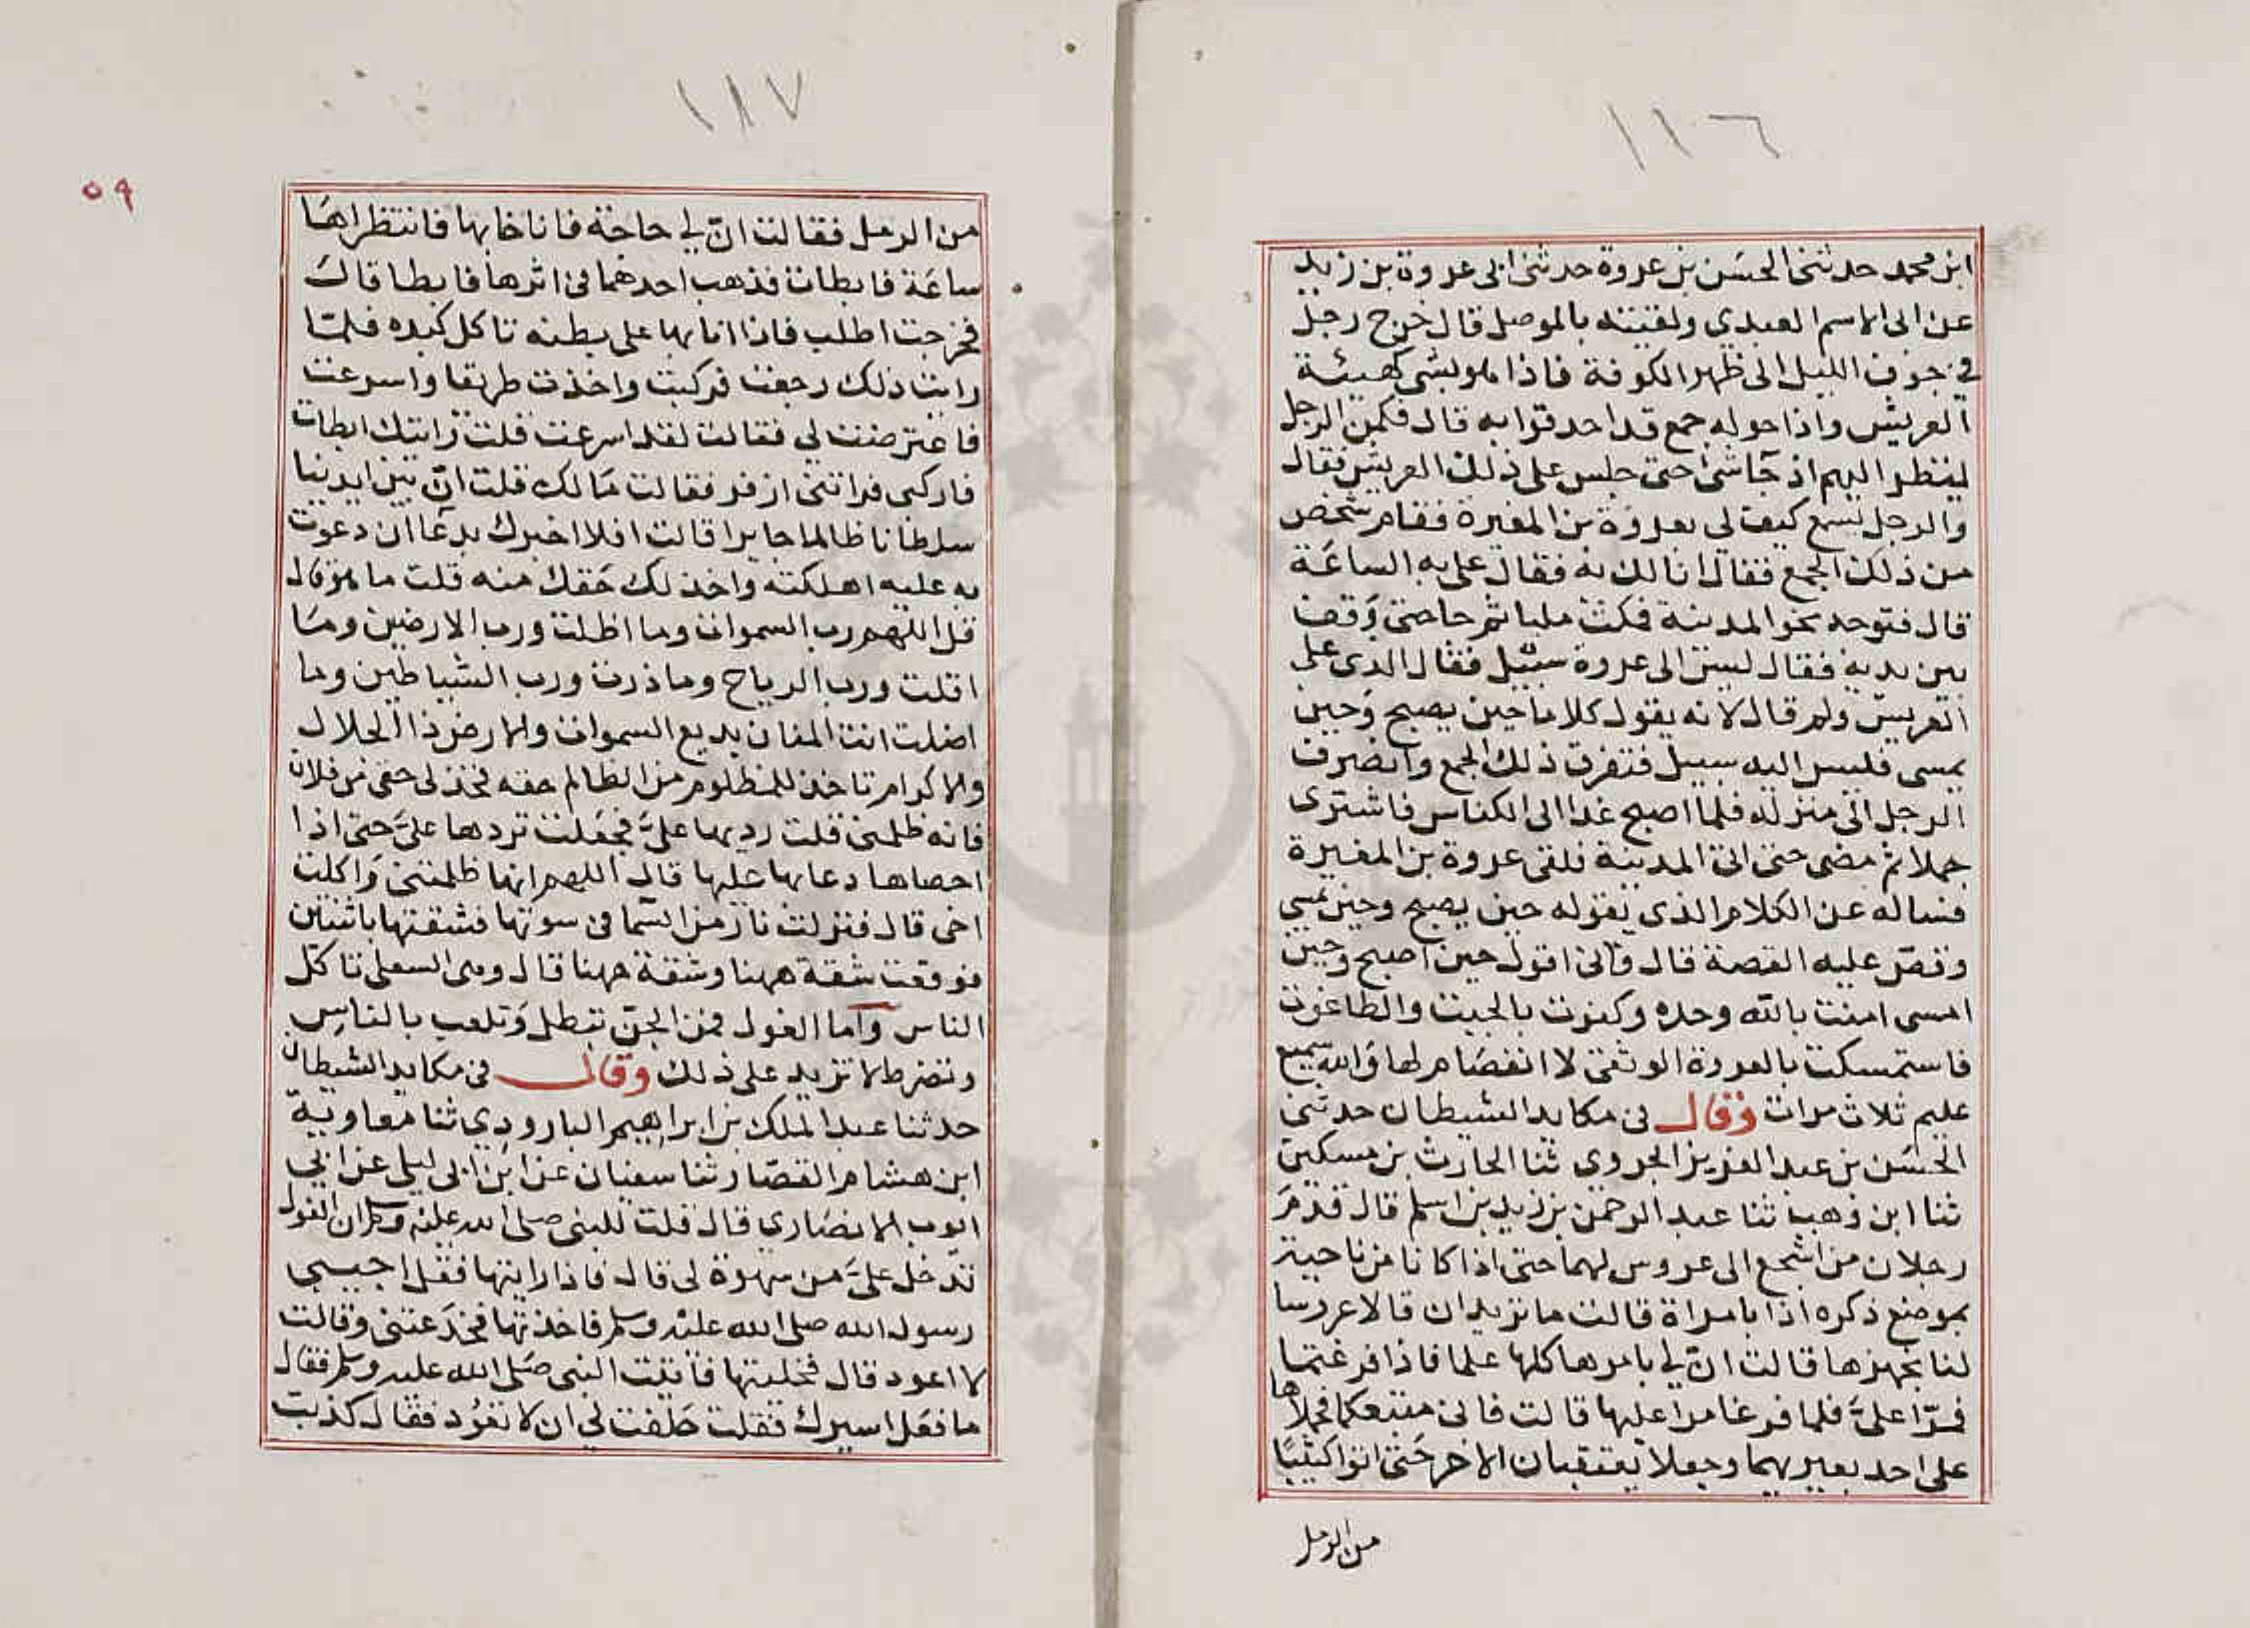 ١١٦
ابن محمد حدثنى الحسَن بن عروة حدثنى ابى عروة بن زيد
عن ابى الاسم العبدي ولقيته بالموصل قال خرج رجل
في جوف الليل الى ظهر الكوفة فاذا هو بشى كهيئة
العريش واذا حوله جمع قد احدقوا به قال فكمن الرجل
لينظر اليهم اذ جآ شئ حتى جلس على ذلك العريش فقال
والرجل يسمع كيف لى بعروة بن المغيرة فقام شخص
من ذلك الجمع فقال انا لك به فقال على به الساعَة
قال فتوجه نحو المدينة فمكث مليا ثم جا حتى وَقف
بين يديه فقال ليس الى عروة سبيل فقال الذى على
العريش ولم قال لانه يقول كلاما حين يصبح وَحين
يمسى فليس اليه سبيل فتفرق ذلك الجمع وانصرف
الرجل الى منزله فلما اصبح غدا الى الكناس فاشترى
جملا ثم مضى حتى اتى المدينة فلقى عروة بن المغيرة
فساله عن الكلام الذى يقوله حين يصبح وحين يمسي
وقصّ عليه القصة قال فانى اقول حين اصبح وحين
امسى امنت بالله وحده وكفرت بالجبت والطاغوت
فاستمسكت بالعروة الوثقى لا انفصَام لها وَالله سميع
عليم ثلاث مرات وقال فى مكايد الشيطان حدثنى
الحسَن بن عبد العزيز الجروى ثنا الحارث بن مسكين
ثنا ابن وَهب ثنا عبد الرحمن بن زيد بن اسلم قال قدمَ
رجلان من اشجع الى عروس لهما حتى اذا كانا من ناحية
بموضع ذكره اذا بامراة قالت ما تريدان قالا عروسا
لنا نجهزها قالت انّ لي بامرها كلها علما فاذا فرغتما
فمرّا علىَّ فلما فرغا مرا عليها قالت فانى متبعكما فحملاها
على احد بعيريهما وجعلا يعتقبان الاخر حَتى اتوا كثيبًا
من الرمل
١٨٧
٥٩
من الرمل فقالت انّ لي حاجة فاناخا بها فانتظراهَا
ساعَة فابطات فذهب احدهما فى اثرها فابطا قالَ
فخرجت اطلب فاذا انا بها على بطنه تاكل كبده فلمّا
رايت ذلك رجعت فركبت واخذت طريقا واسرعت
فاعترضت لي فقالت لقد اسرعت قلت رَايتك ابطات
فاركبى فراتنى ازفر فقالت مَا لك قلت انّ بين ايدينا
سلطانا ظالما جايرا قالت افلا اخبرك بدعآ ان دعوت
به عليه اهلكته واخذ لك حَقك منه قلت ما هو قال
قل اللهم رب السموات وما اظلت ورب الارضين ومَا
اقلت ورب الرياح وما ذرت ورب الشياطين وما
اضلت انت المنان بديع السموات والارض ذا الجلال
والاكرام تاخذ للمظلوم من الظالم حقه فخذ لى حقى من فلان
فانه ظلمنى قلت رديها علىَّ فجعَلت ترددها علىَّ حتى اذا
احصاها دعا بها عليها قال اللهم انها ظلمتنى وَاكلت
اخى قال فنزلت نار من السّما فى سوتها فشقتها باثنتين
فوقعت شقة ههنا وشقة ههنا قال وهى السعلى تاكل
الناس وَاما الغول فمن الجنّ تبطل وَتلعب بالناسِ
وتضرط لا تزيد على ذلك وقال فى مكايد الشيطان
حدثنا عبد الملك بن ابراهيم البارودِي ثنا معاوية
ابن هشام القصّار ثنا سفيان عن ابن ابى ليلى عن ابي
ايوب الانصَاري قال قلت للنبى صلى الله عليه وسلم ان الغول
تدخل علىَّ من سهوة لى قال فاذا رايتها فقل اجيبي
رسول الله صلى الله عليه وسلم فاخذتها فخدَعتنى وقالت
لا اعود قال فخليتها فاتيت النبى صَلى الله عليه وسلم فقال
ما فعَل اسيرك فقلت حَلفت لي ان لا تعُود فقال كذبت